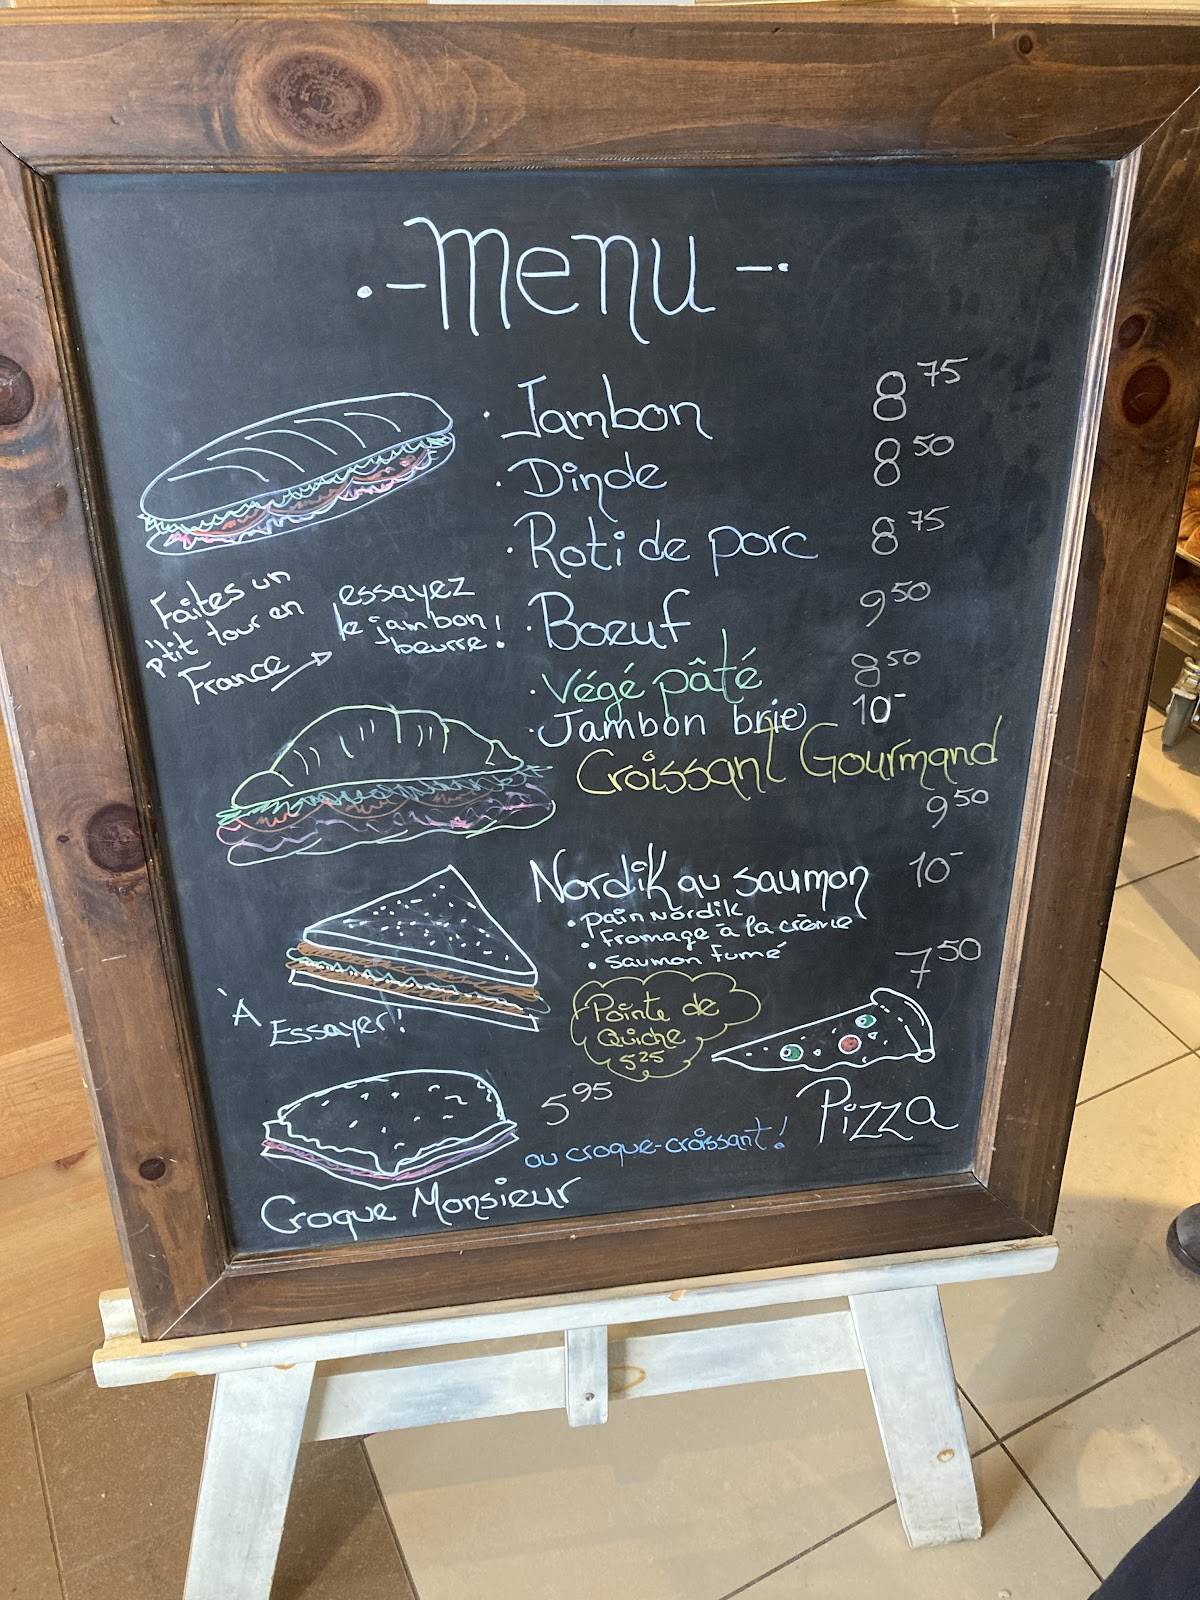 ·-Menu-·
· Jambon 8 75
· Dinde 8 50
· Roti de porc 8 75
· Boeuf 9 50
· Végé pâté 8 50
· Jambon brie 10-
Faites un
p'tit tour en
France →
essayez
le jambon
beurre!
Croissant Gourmand
9 50
Nordik au saumon 10-
• pain Nordik
• Fromage à la crème
• Saumon fumé
À Essayer!
Pointe de
Quiche
5 25
7 50
Pizza
5 95
ou croque-croissant!
Croque Monsieur